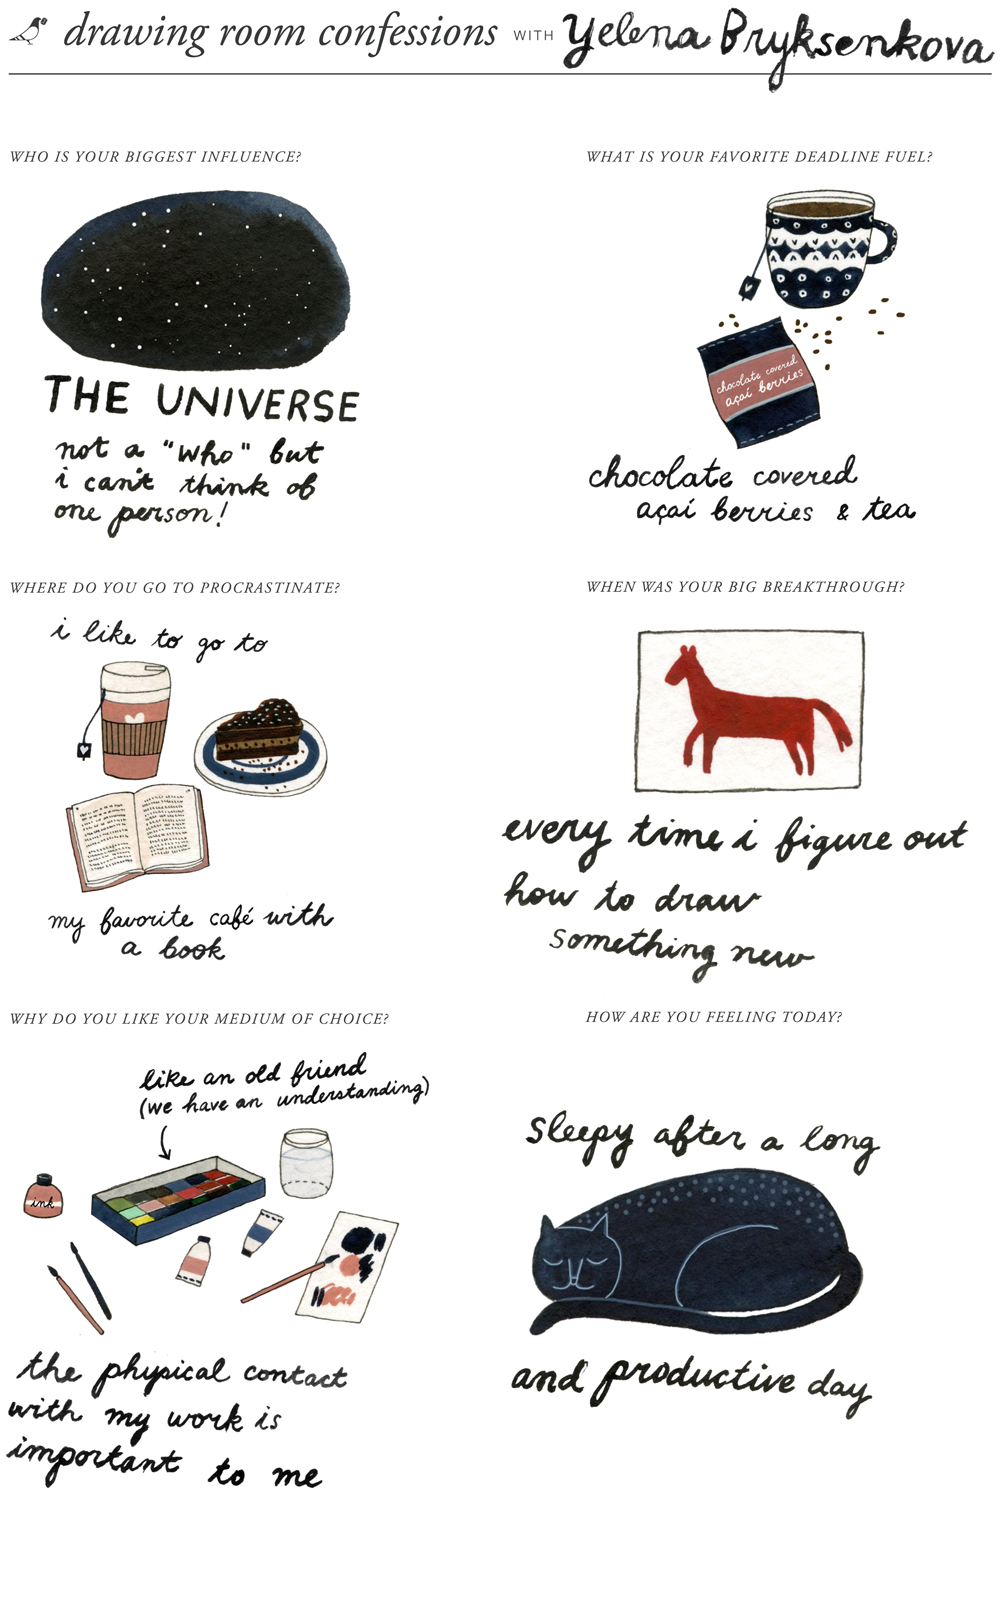 drawing room confessions WITH Yelena Bryksenkova
WHO IS YOUR BIGGEST INFLUENCE?
THE UNIVERSE
not a "who" but
i can't think of
one person!
WHAT IS YOUR FAVORITE DEADLINE FUEL?
chocolate covered
açaí berries
chocolate covered
açaí berries & tea
WHERE DO YOU GO TO PROCRASTINATE?
i like to go to
my favorite café with
a book
WHEN WAS YOUR BIG BREAKTHROUGH?
every time i figure out
how to draw
something new
WHY DO YOU LIKE YOUR MEDIUM OF CHOICE?
like an old friend
(we have an understanding)
ink
the physical contact
with my work is
important to me
HOW ARE YOU FEELING TODAY?
sleepy after a long
and productive day